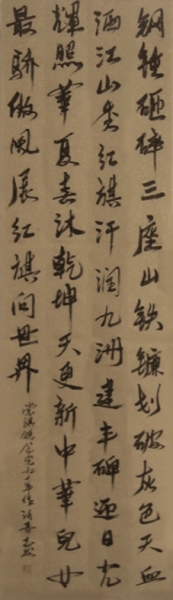 钢锤砸碎三座山铁镰划破灰色天血
洒江山秀红旗汗润九洲建丰碑迎日光
辉照华夏春沐乾坤天更新中华儿女
最骄傲风展红旗问世界